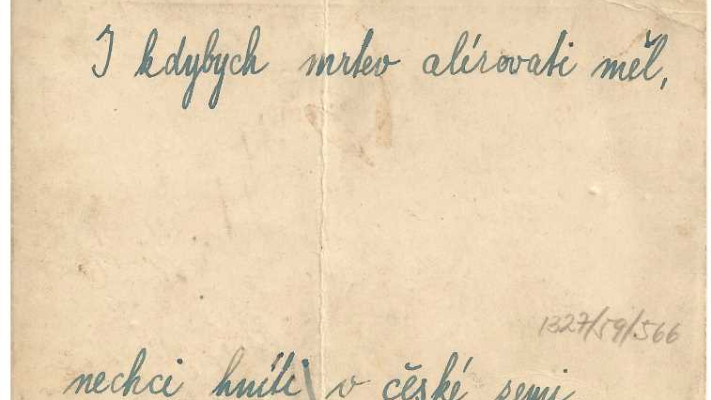 I kdybych mrtev alírovati měl,
1327/59/566
nechci hníti v české zemi